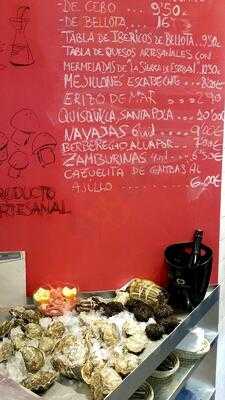 -DE CEBO ... 9'50.
-DE BELLOTA ... 16
TABLA DE IBÉRICOS DE BELLOTA. 9'50€
TABLA DE QUESOS ARTESANALES CON
MERMELADAS DE LA SIERRA DE ESPADAN.
MEJILLONES ESCABECHE
ERIZO DE MAR ... 2'90
QUISQUILLA SANTA POLA ...
NAVAJAS 6 ud ... 9'00€
BERBERECHO AL VAPOR ...
ZAMBURIÑAS 4 ud ... 6'50€
CAZUELITA DE GAMBAS AL
AJILLO ... 6,00€
PRODUCTO
ARTESANAL